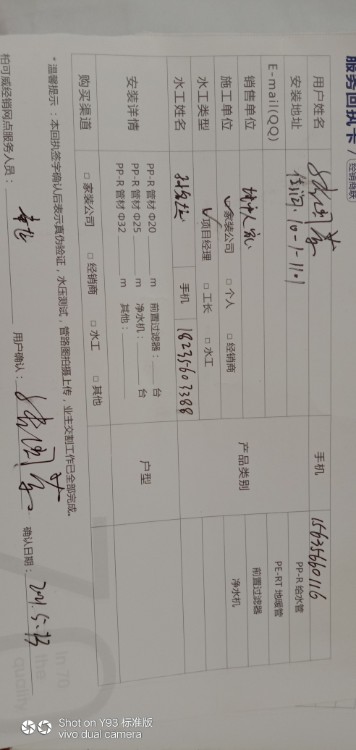 服务回执卡（经销商联）
用户姓名 手机 15635660116
安装地址 10-1-1101 PP-R 给水管
E-mail(QQ) PE-RT 地暖管
销售单位 产品类别 前置过滤器
施工单位 ✓家装公司 □ 个人 □ 经销商 净水机
水工类型 ✓项目经理 □ 工长 □ 水工
水工姓名 手机 18235607388
安装详情 PP-R 管材 Φ20 m 前置过滤器： 台 户型
PP-R 管材 Φ25 m 净水机： 台
PP-R 管材 Φ32 m 其他：
购买渠道 □ 家装公司 □ 经销商 □ 水工 □ 其他
*温馨提示：本回执签字确认后表示真伪验证，水压测试，管路图拍摄上传，业主交割工作已全部完成。
柏可威经销网点服务人员： 用户确认： 确认日期：2021.5.23
in 70
the
quality
Shot on Y93 标准版
vivo dual camera